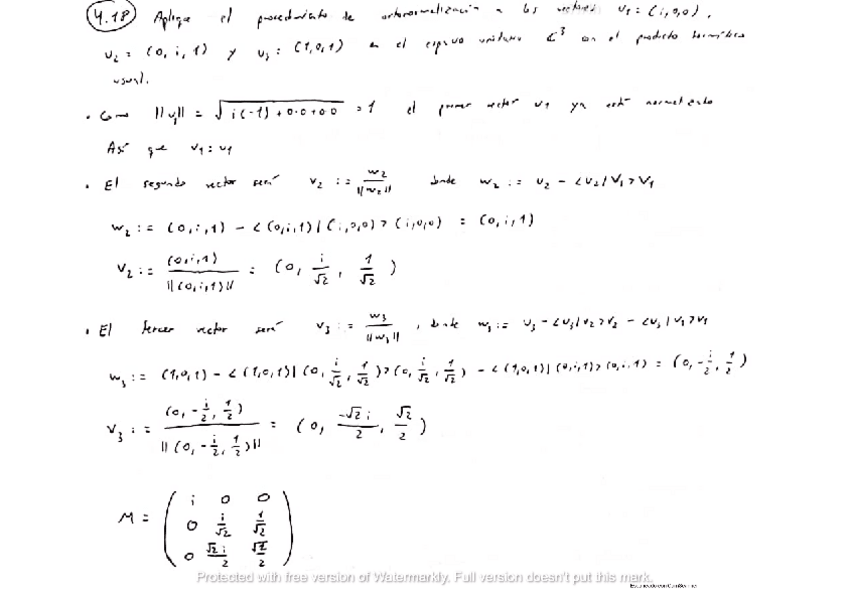 4.18 Aplique el procedimiento de ortonormalización a los vectores u₁ = (i,0,0),
u₂ = (0, i, 1) y u₃ = (1,0,1) en el espacio unitario ℂ³ con el producto hermítico
usual.
• Como ||u₁|| = √(i(-i) + 0·0 + 0·0) = 1 el primer vector u₁ ya está normalizado
Así que v₁ = u₁
• El segundo vector será v₂ := w₂/||w₂|| donde w₂ := u₂ - <u₂|v₁>v₁
w₂ := (0,i,1) - <(0,i,1)|(i,0,0)>(i,0,0) = (0,i,1)
v₂ := (0,i,1)/||(0,i,1)|| = (0, i/√2, 1/√2)
• El tercer vector será v₃ := w₃/||w₃||, donde w₃ := u₃ - <u₃|v₂>v₂ - <u₃|v₁>v₁
w₃ := (1,0,1) - <(1,0,1)|(0, i/√2, 1/√2)>(0, i/√2, 1/√2) - <(1,0,1)|(0,i,1)>(0,i,1) = (0, -i/2, 1/2)
v₃ := (0, -i/2, 1/2)/||(0, -i/2, 1/2)|| = (0, -√2i/2, √2/2)
M = ( i 0 0
0 i/√2 1/√2
0 √2i/2 √2/2 )
Protected with free version of Watermarkly. Full version doesn't put this mark.
Escaneado con CamScanner